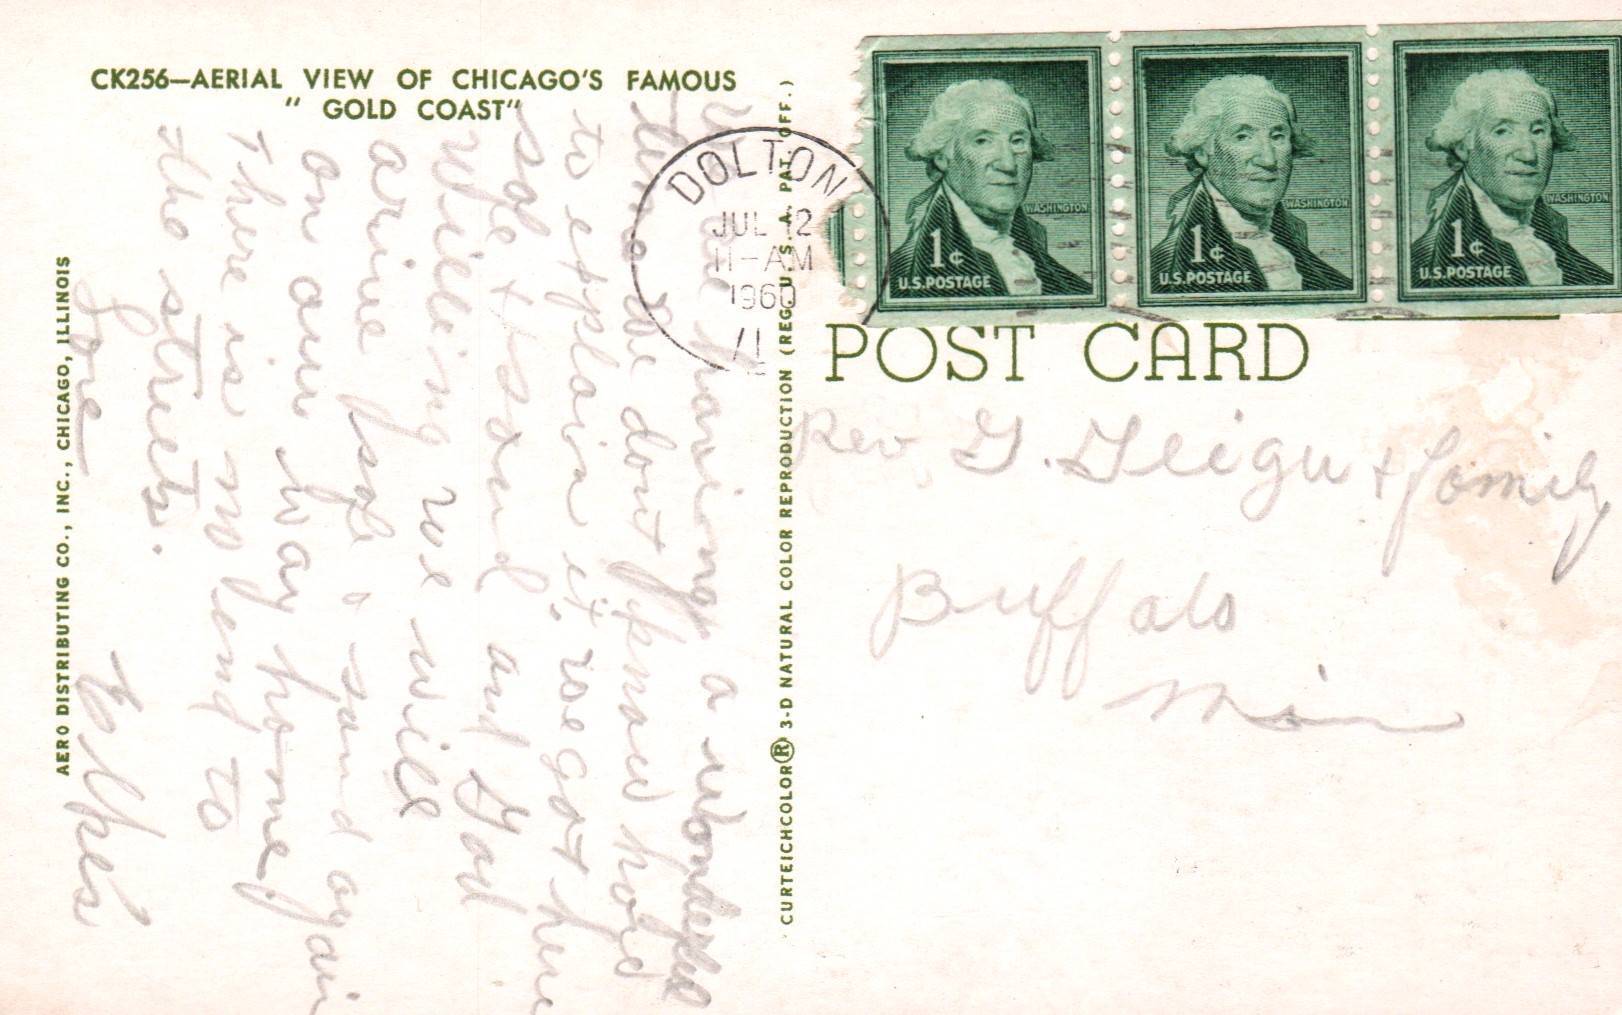 CK256—AERIAL VIEW OF CHICAGO'S FAMOUS
" GOLD COAST"
AERO DISTRIBUTING CO., INC., CHICAGO, ILLINOIS
We are having a wonderful
time we dont know how
to explain it. we got here
safe & sound and God
Willing we will
arive safe & sound again
on our way home.
There is no end to
the streets.
Love
CURTEICHCOLOR® 3-D NATURAL COLOR REPRODUCTION (REG. U.S.A. PAT. OFF.)
DOLTON
JUL 12
11-AM
1960
WASHINGTON
1¢
U.S. POSTAGE
WASHINGTON
1¢
U.S. POSTAGE
WASHINGTON
1¢
U.S. POSTAGE
POST CARD
Rev G. & family
Buffalo
Minn